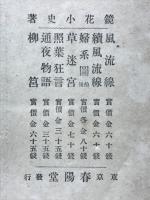 鏡花小史著
風流線 實價金六十錢
續風流線 實價金六十錢
婦系圖 前後 實價各金八十錢
草迷宮 實價金七十錢
照葉狂言 實價金三十五錢
通夜物語 實價金三十五錢
柳筥 實價金六十五錢
東京 春陽堂 發行